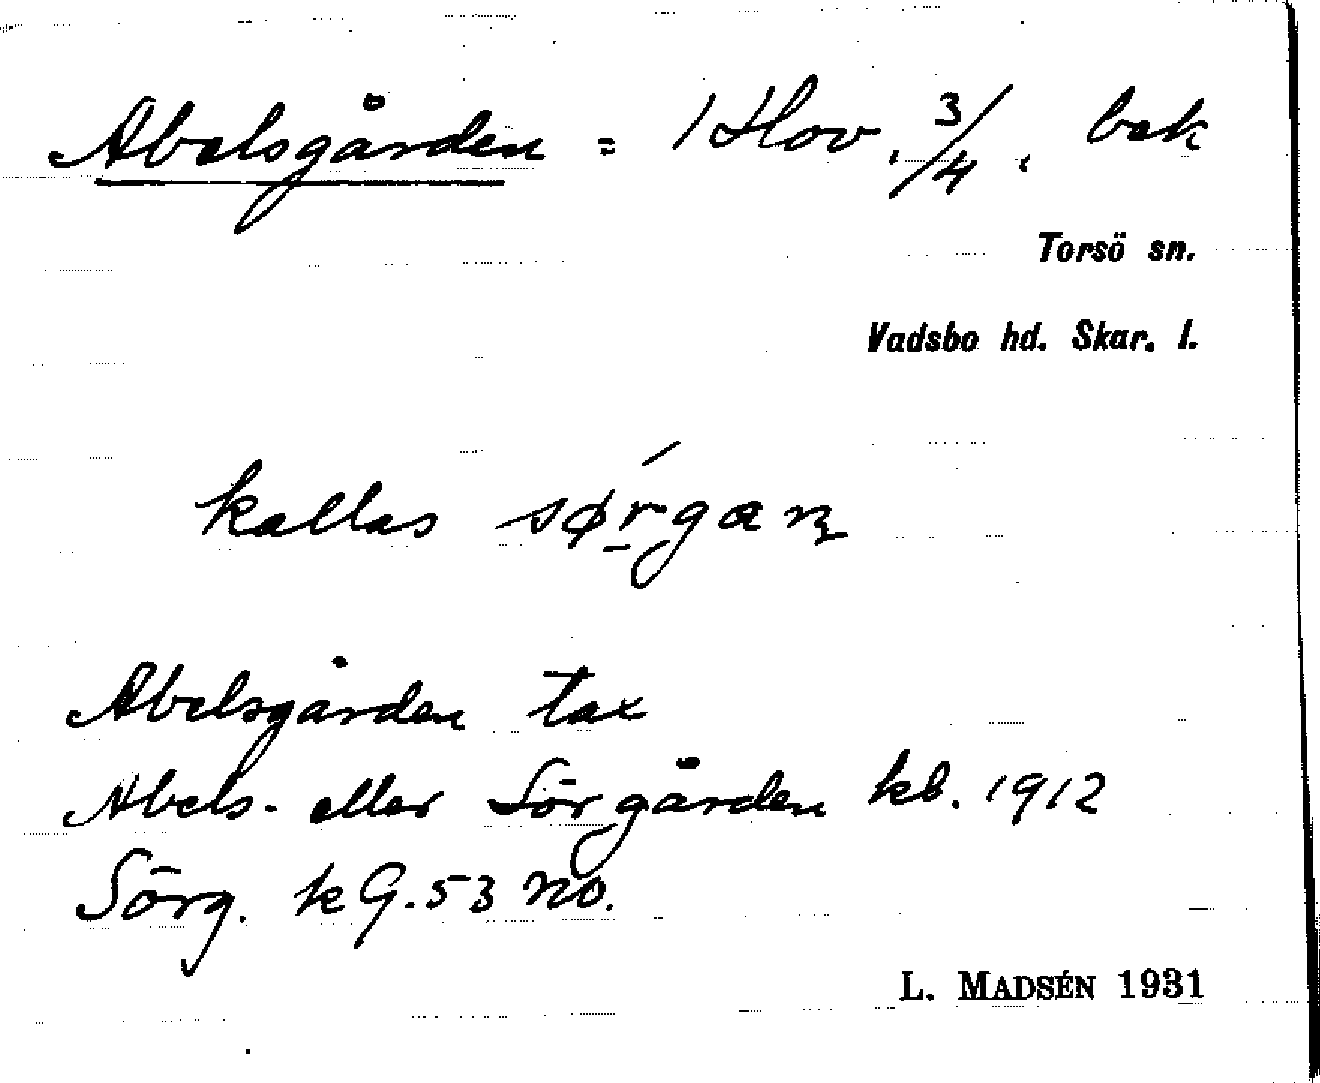 Abelsgården = 1 Hov, 3/4, bsk
Torsö sn.
Vadsbo hd. Skar. l.
kallas sørgaɳ
Abelsgården tax
Abels- eller Sörgården kb. 1912
Sörg. k G. 53 no.
L. MADSÉN 1931